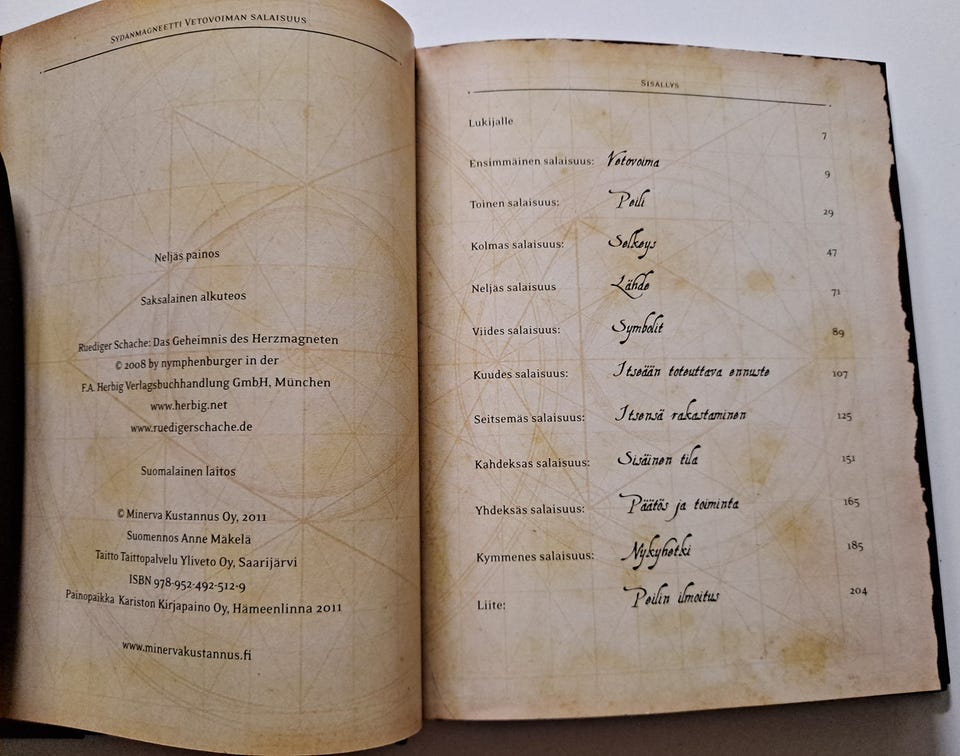 Sydänmagneetti Vetovoiman salaisuus
Neljäs painos
Saksalainen alkuteos
Ruediger Schache: Das Geheimnis des Herzmagneten
© 2008 by nymphenburger in der
F.A. Herbig Verlagsbuchhandlung GmbH, München
www.herbig.net
www.ruedigerschache.de
Suomalainen laitos
© Minerva Kustannus Oy, 2011
Suomennos Anne Mäkelä
Taitto Taittopalvelu Yliveto Oy, Saarijärvi
ISBN 978-952-492-512-9
Painopaikka Kariston Kirjapaino Oy, Hämeenlinna 2011
www.minervakustannus.fi
Sisällys
Lukijalle 7
Ensimmäinen salaisuus: Vetovoima 9
Toinen salaisuus: Peili 29
Kolmas salaisuus: Selkeys 47
Neljäs salaisuus Lähde 71
Viides salaisuus: Symbolit 89
Kuudes salaisuus: Itseään toteuttava ennuste 107
Seitsemäs salaisuus: Itsensä rakastaminen 125
Kahdeksas salaisuus: Sisäinen tila 151
Yhdeksäs salaisuus: Päätös ja toiminta 165
Kymmenes salaisuus: Nykyhetki 185
Liite: Peilin ilmoitus 204